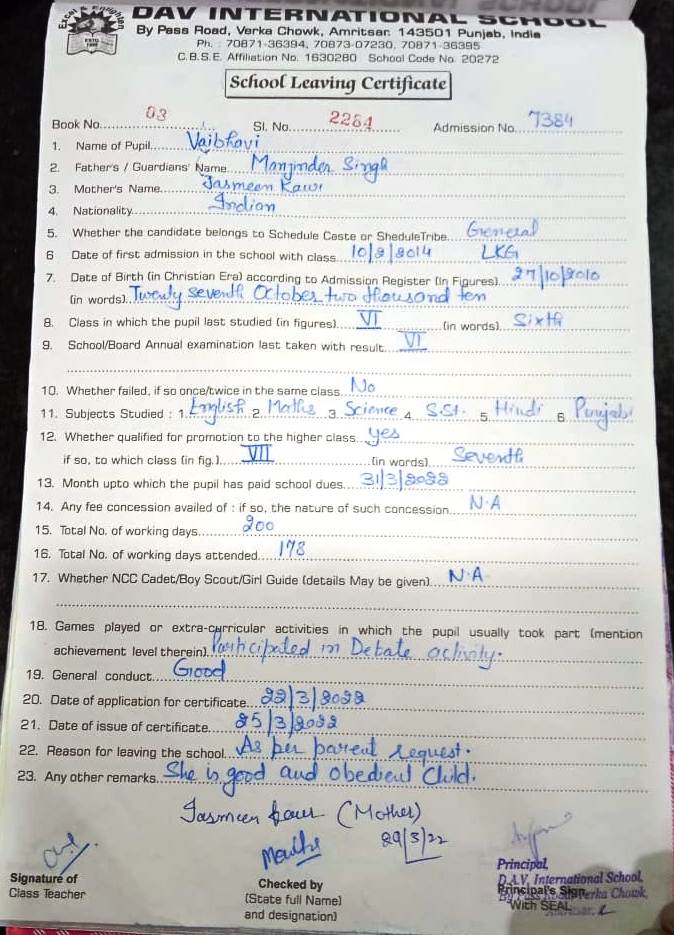 DAV INTERNATIONAL SCHOOL
By Pass Road, Verka Chowk, Amritsar. 143501 Punjab, India
Ph. : 70871-36394, 70873-07230, 70871-36395
C.B.S.E. Affiliation No. 1630280 School Code No. 20272
School Leaving Certificate
Book No. 03 Sl. No. 2284 Admission No. 7384
1. Name of Pupil Vaibhavi
2. Father's / Guardians' Name Manjinder Singh
3. Mother's Name Jasmeen Kaur
4. Nationality Indian
5. Whether the candidate belongs to Schedule Caste or SheduleTribe General
6 Date of first admission in the school with class 10/2/2014 LKG
7. Date of Birth (in Christian Era) according to Admission Register (in Figures) 27/10/2010
(in words) Twenty seventh October two thousand ten
8. Class in which the pupil last studied (in figures) VI (in words) Sixth
9. School/Board Annual examination last taken with result VI
10. Whether failed, if so once/twice in the same class No
11. Subjects Studied : 1. English 2. Maths 3. Science 4. S.St. 5. Hindi 6. Punjabi
12. Whether qualified for promotion to the higher class yes
if so, to which class (in fig.) VII (in words) Seventh
13. Month upto which the pupil has paid school dues 31/3/2022
14. Any fee concession availed of : if so, the nature of such concession N.A
15. Total No. of working days 200
16. Total No. of working days attended 178
17. Whether NCC Cadet/Boy Scout/Girl Guide (details May be given) N.A
18. Games played or extra-curricular activities in which the pupil usually took part (mention
achievement level therein) Participated in Debate activity.
19. General conduct Good
20. Date of application for certificate 22/3/2022
21. Date of issue of certificate 25/3/2022
22. Reason for leaving the school As per parent request.
23. Any other remarks She is good and obedient child.
Jasmeen Kaur (Mother)
29/3/22
Signature of
Class Teacher
Checked by
(State full Name)
and designation)
Principal,
D.A.V. International School,
Principal's Sign
Verka Chowk,
With SEAL